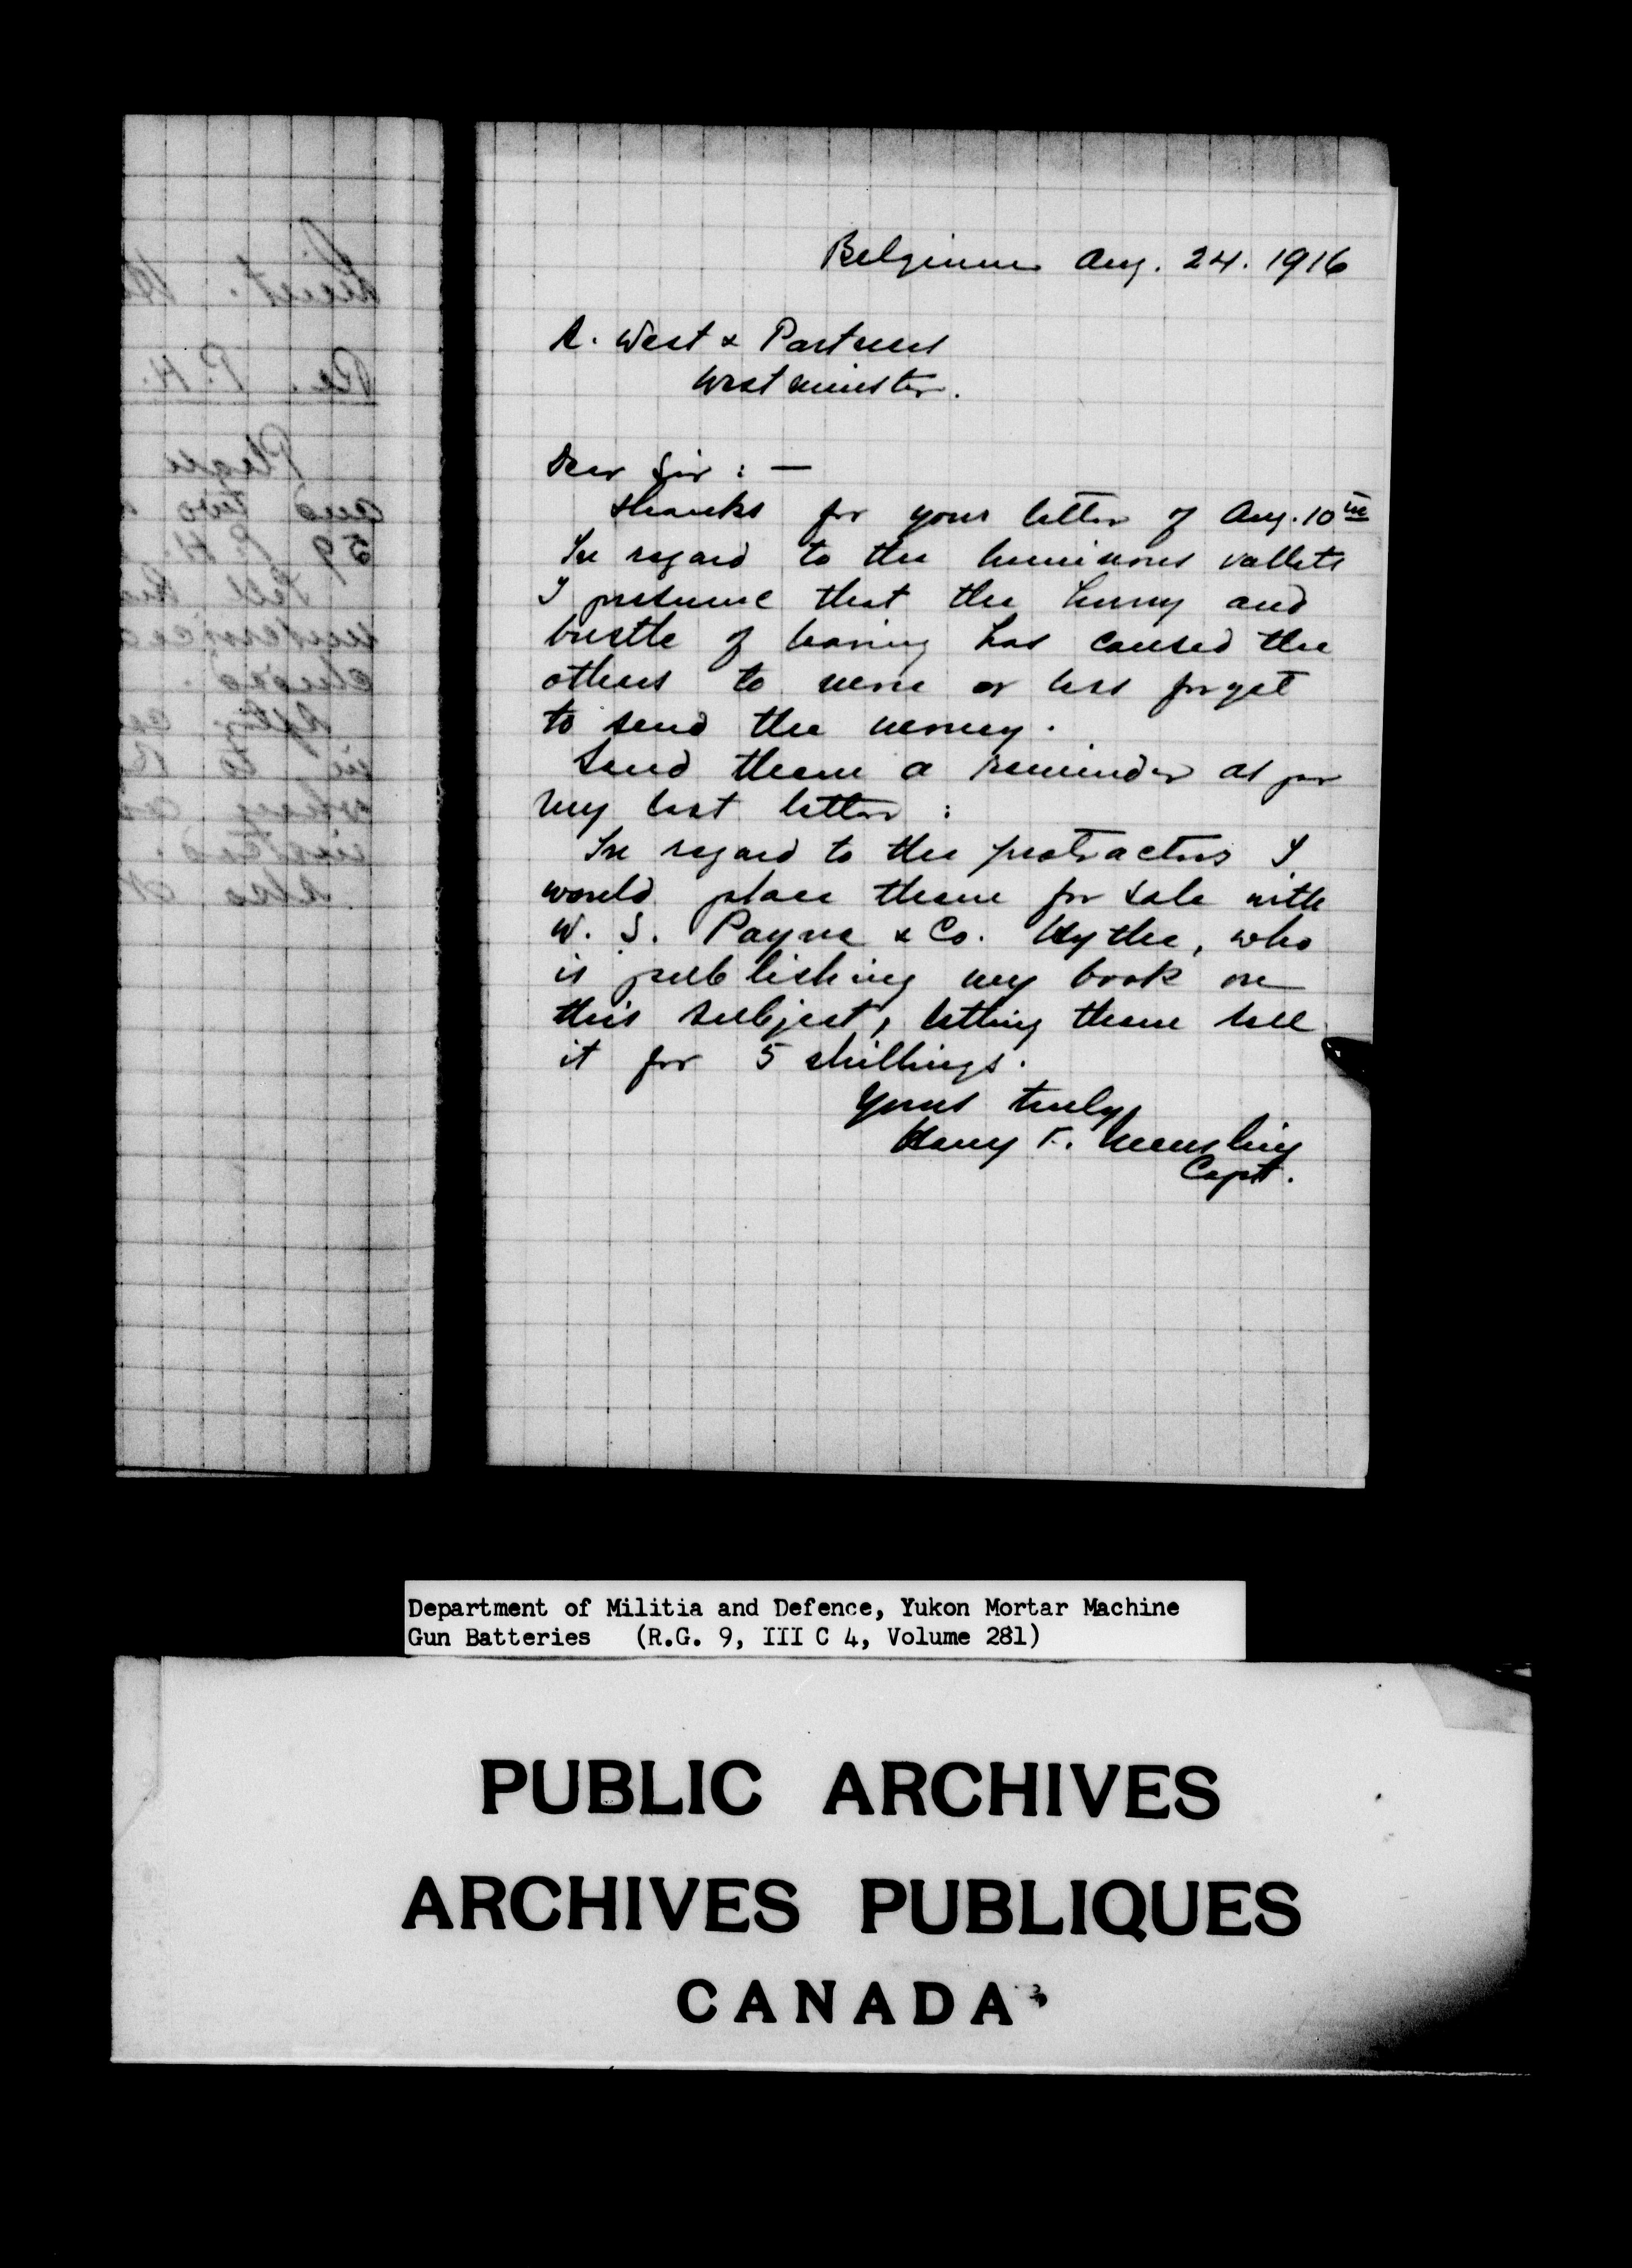 Belgium Aug. 24. 1916
A. West & Partners
Westminster.
Dear Sir : —
Thanks for your letter of Aug. 10th
In regard to the luminous
I presume that the hurry and
bustle of leaving has caused the
others to more or less forget
to send the money.
Send them a reminder as per
my last letter :
In regard to the protractors I
would place them for sale with
W. S. Payne & Co. Hythe, who
is publishing my book on
this subject, letting them sell
it for 5 shillings.
Yours truly,
Harry F. Meurling
Capt.
Lieut.
Re. P. H.
Please
and two
59 P. H.
Sell
in to
instead.
Also
Department of Militia and Defence, Yukon Mortar Machine
Gun Batteries (R.G. 9, III C 4, Volume 281)
PUBLIC ARCHIVES
ARCHIVES PUBLIQUES
CANADA